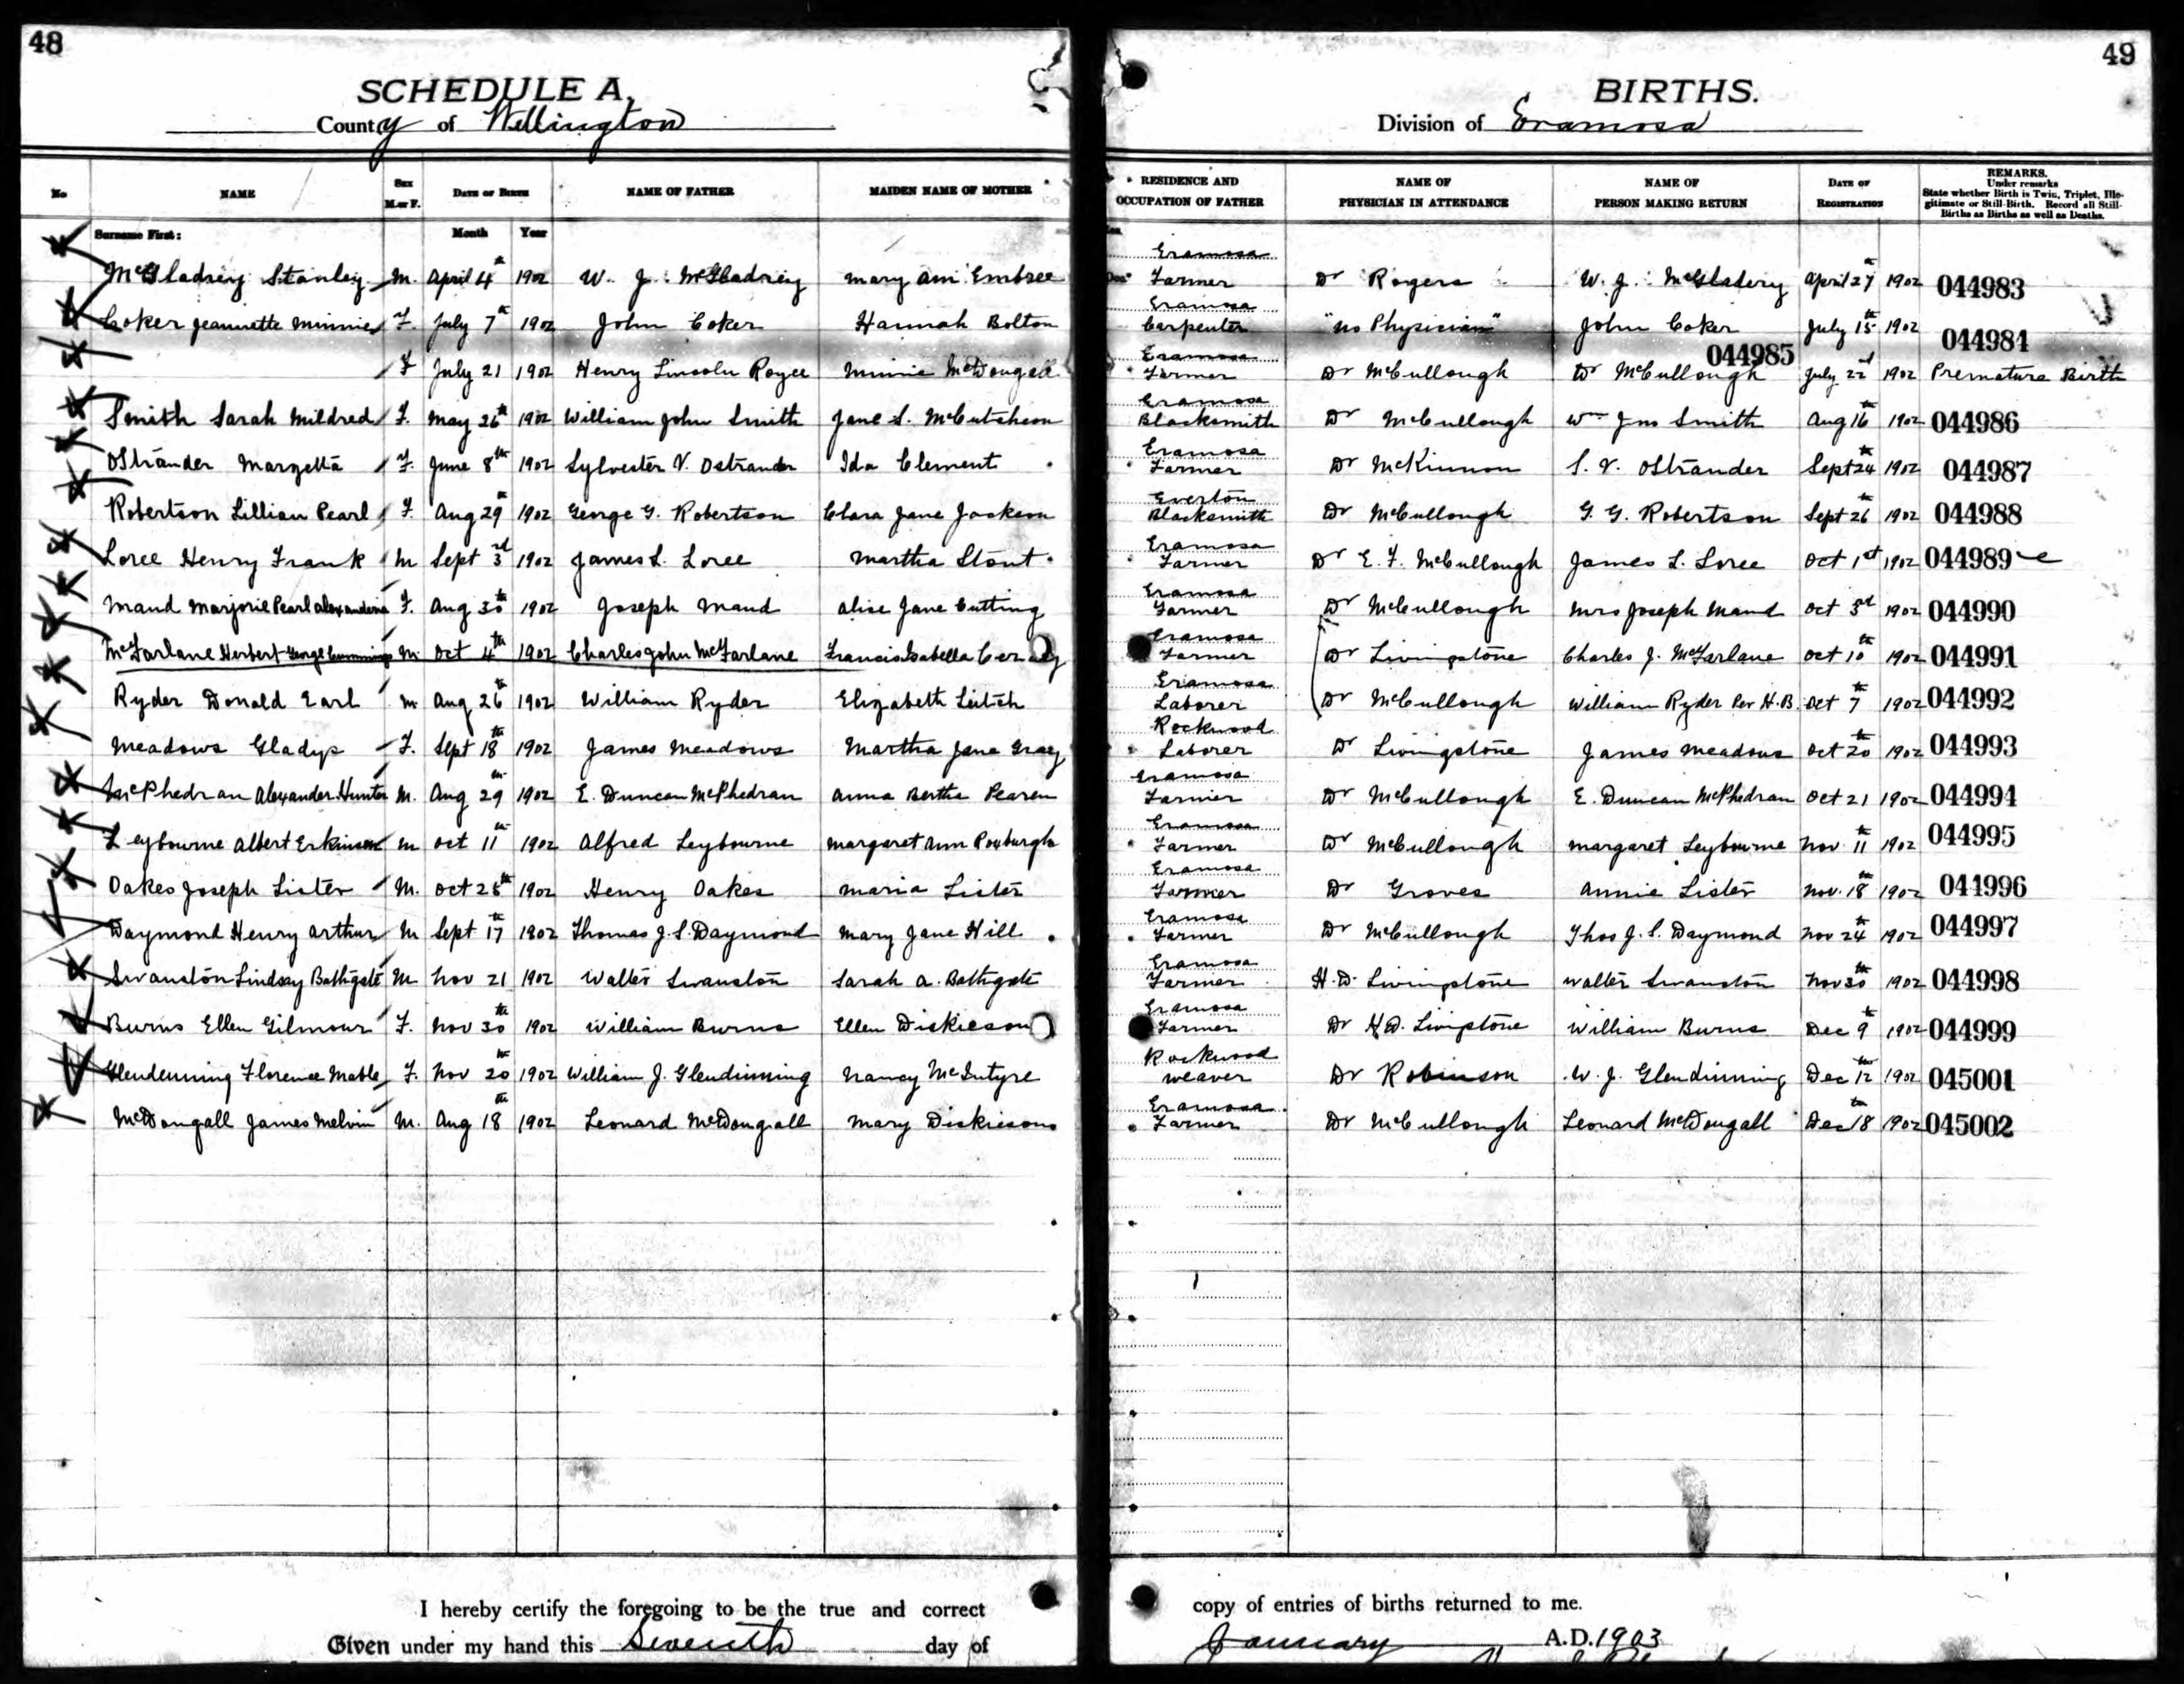 48
49
SCHEDULE A.
BIRTHS.
County of Wellington
Division of Eramosa
No NAME Sex M. or F. DATE OF BIRTH NAME OF FATHER MAIDEN NAME OF MOTHER RESIDENCE AND OCCUPATION OF FATHER NAME OF PHYSICIAN IN ATTENDANCE NAME OF PERSON MAKING RETURN DATE OF REGISTRATION REMARKS. Under remarks State whether Birth is Twin, Triplet, Ille-gitimate or Still-Birth. Record all Still-Births as Births as well as Deaths.
Surname First: Month Year
McGladrey Stanley M. April 4th 1902 W. J. McGladrey Mary Ann Embree Eramosa Farmer Dr Rogers W. J. McGladery April 27th 1902 044983
Coker Jeannette Minnie F. July 7th 1902 John Coker Hannah Bolton Eramosa Carpenter "no Physician" John Coker July 15 1902 044984
F July 21 1902 Henry Lincoln Royce Minnie McDougall Eramosa Farmer Dr McCullough Dr McCullough July 22nd 1902 044985 Premature Birth
Smith Sarah Mildred F. May 26th 1902 William John Smith Jane S. McCutcheon Eramosa Blacksmith Dr McCullough Wm Jno Smith Aug 16th 1902 044986
Ostrander Margetta F. June 8th 1902 Sylvester V. Ostrander Ida Clement Eramosa Farmer Dr McKinnon S. V. Ostrander Sept 24th 1902 044987
Robertson Lillian Pearl F. Aug 29th 1902 George G. Robertson Clara Jane Jackson Everton Blacksmith Dr McCullough G. G. Robertson Sept 26th 1902 044988
Loree Henry Frank M Sept 3rd 1902 James L. Loree Martha Stout Eramosa Farmer Dr E. F. McCullough James L. Loree Oct 1st 1902 044989
Mand Marjorie Pearl Alexandena F. Aug 30th 1902 Joseph Mand Alice Jane Cutting Eramosa Farmer Dr McCullough Mrs Joseph Mand Oct 3rd 1902 044990
McFarlane Herbert George Cummings M Oct 4th 1902 Charles John McFarlane Francis Isabella Eramosa Farmer Dr Livingstone Charles J. McFarlane Oct 10th 1902 044991
Ryder Donald Earl M Aug 26th 1902 William Ryder Elizabeth Leitch Eramosa Laborer Dr McCullough William Ryder Per H. B. Oct 7th 1902 044992
Meadows Gladys F. Sept 18th 1902 James Meadows Martha Jane Gray Rockwood Laborer Dr Livingstone James Meadows Oct 20th 1902 044993
McPhedran Alexander Hunter M. Aug 29th 1902 E. Duncan McPhedran Anna Bertha Pearen Eramosa Farmer Dr McCullough E. Duncan McPhedran Oct 21 1902 044994
Leybourne Albert Erkinson M Oct 11th 1902 Alfred Leybourne Margaret Ann Roxburgh Eramosa Farmer Dr McCullough Margaret Leybourne Nov 11th 1902 044995
Oakes Joseph Lister M. Oct 28th 1902 Henry Oakes Maria Lister Eramosa Farmer Dr Groves Annie Lister Nov. 18th 1902 044996
Daymond Henry Arthur M Sept 17th 1902 Thomas J. S. Daymond Mary Jane Hill Eramosa Farmer Dr McCullough Thos J. S. Daymond Nov 24th 1902 044997
Swanston Lindsay Bathgate M Nov 21 1902 Walter Swanston Sarah A. Bathgate Eramosa Farmer H. D. Livingstone Walter Swanston Nov 30th 1902 044998
Burns Ellen Gilmour F. Nov 30th 1902 William Burns Ellen Dickieson Eramosa Farmer Dr H D. Livingstone William Burns Dec 9th 1902 044999
Glendenning Florence Mable F. Nov 20th 1902 William J. Glendinning Nancy McIntyre Rockwood Weaver Dr Robinson W. J. Glendinning Dec 12th 1902 045001
McDougall James Melvin M. Aug 18th 1902 Leonard McDougall Mary Dickieson Eramosa Farmer Dr McCullough Leonard McDougall Dec 18th 1902 045002
I hereby certify the foregoing to be the true and correct copy of entries of births returned to me.
Given under my hand this Seventh day of January A.D. 1903